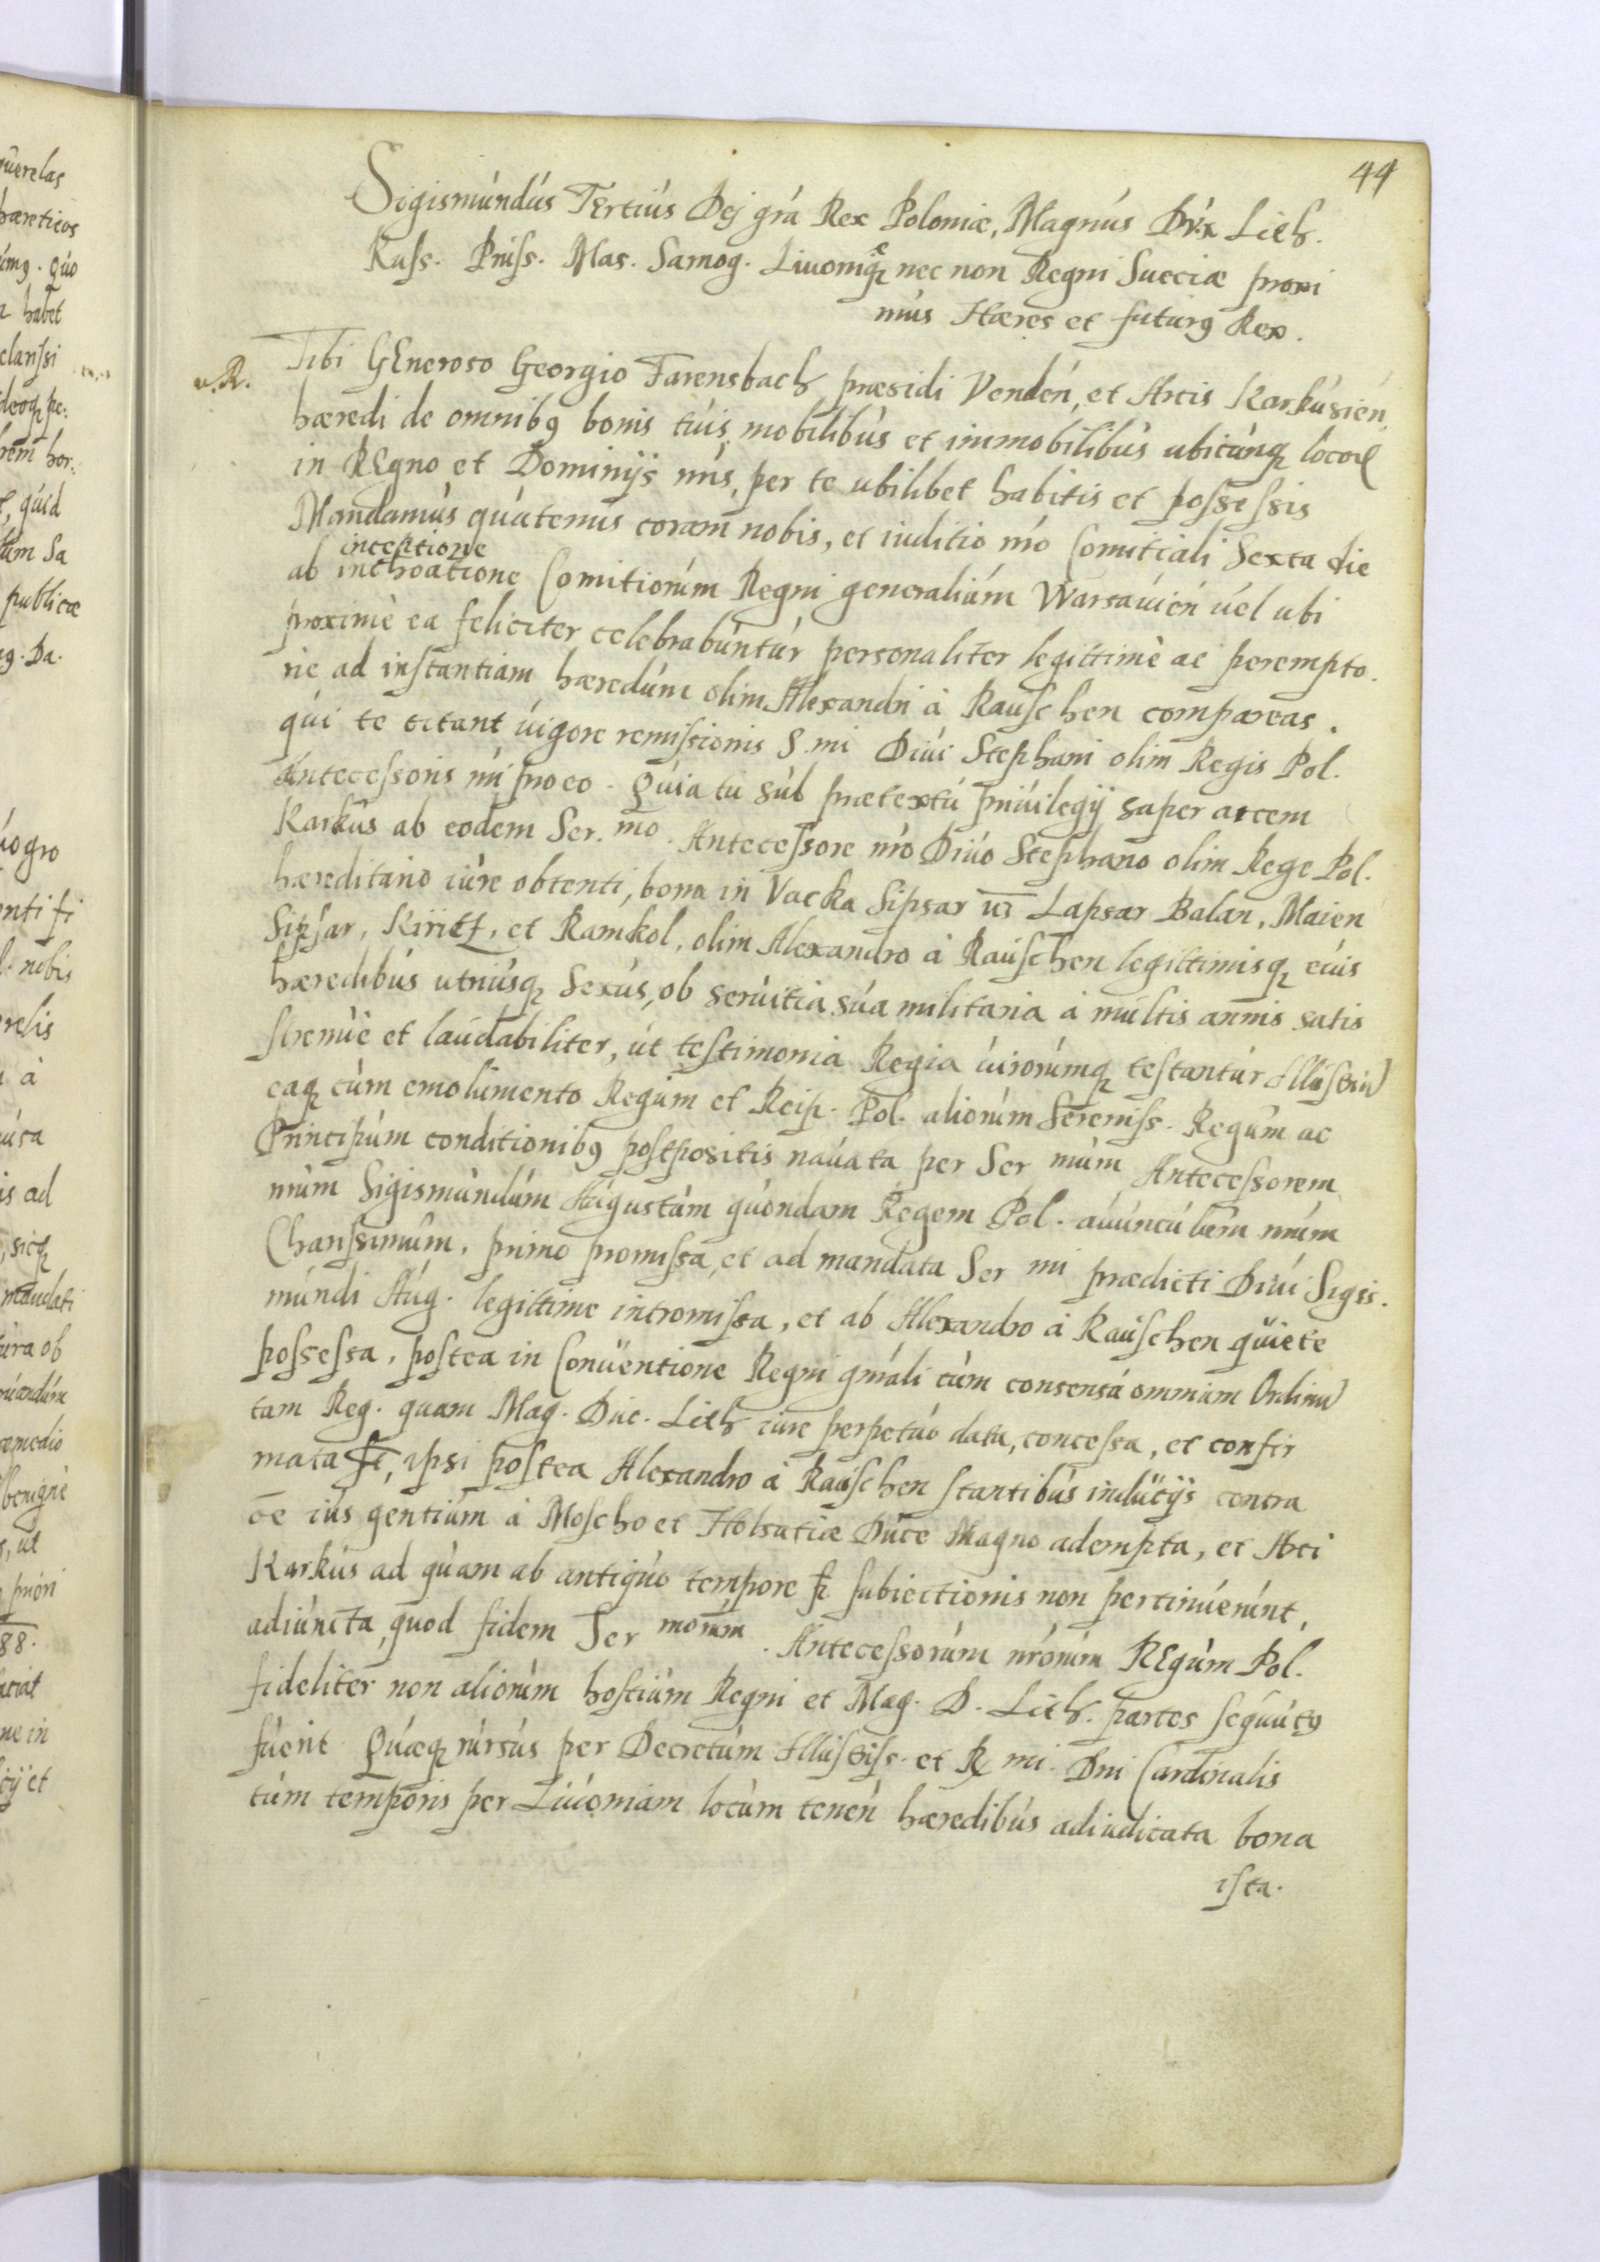 44
Sigismúndús Tertiús Dej grá Rex Poloniæ, Magnús Dvx Lith.
Russ. Prúss. Mas. Samog. Liuoniæq nec non Regni Sueciæ proxi
mús Hæres et futurg Rex.
v. R.
Tibi GEneroso Georgio Farensbach præsidi Vendén, et Arcis Karkúsién,
hæredi de omnibg bonis túis mobilibús et immobilibús ubicúnq locor
in REgno et Dominijs nris, per te ubilibet habitis et possessis
Mandamús quátenús coram nobis, et iuditio nro Comitiali Sexta die
inceptione
ab inchoatione Comitiorúm Regni generaliúm Warsauién uel ubi
proximè ea feliciter celebrabúntúr personaliter legittimè ac perempto.
rie ad instantiam hæredúm olim Alexandri à Rauschen compareas.
qúi te citant uigore remissionis S. mi Diui Stephani olim Regis Pol.
Antecessoris nri pro eo. Quia tu súb prætextú priuilegij super arcem
Karkús ab eodem Ser. mo. Antecessore nro Diuo Stephano olim Rege Pol.
hæreditario iúre obtenti, bona in Vacka Sipsar Lapsar Balan, Maien
Sipsar, Kirietz, et Ramkol, olim Alexandro à Rauschen legittimisq eiús
hæredibús utriúsq Sexús, ob seruitia súa militaria à multis annis satis
strenuè et laúdabiliter, út testimonia Regia úirorúmq testantúr Illustriú
eaq cúm emolúmento Regúm et Reip. Pol. aliorúm Sereniss. Regúm ac
Principúm conditionibg postpositis nauata per Ser múm Antecessorem
nrúm Sigismúndúm Aúgustúm quondam Regem Pol. aúúncúlúm nrúm
Charissimúm, primo promissa, et ad mandata Ser mi prædicti Diúi Sigis.
múndi Aúg. legittime intromissa, et ab Alexandro à Raúschen qúiete
possessa, postea in Conúentione Regni gnráli cúm consensú omnium Ordinú
tam Reg. quam Mag. Dúc. Lith iúre perpetúo data, concessa, et confir
mata st, ipsi postea Alexandro à Raúschen stantibús indúcijs contra
oe iús gentiúm à Moscho et Holsatiæ Dúce Magno adempta, et Arci
Karkús ad qúam ab antiqúo tempore subiectionis non pertinúerúnt,
adiúncta, quod fidem Ser morúm. Antecessorúm nrorúm REgúm Pol.
fideliter non aliorúm hostiúm Regni et Mag. D. Lith. partes seqúutg
fúerit Qúæq rúrsús per Decretúm Illústriss. et R mi. Dni Cardinalis
túm temporis per Liúoniam locúm tenén hæredibús adiudicata bona
ista.